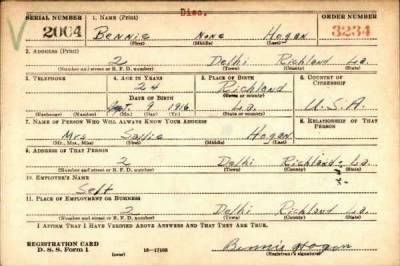 Disc.
SERIAL NUMBER 1. NAME (Print) ORDER NUMBER
2004 Bennie None Hogan 3234
(First) (Middle) (Last)
2. ADDRESS (Print)
2 Delhi Richland La.
(Number and street or R. F. D. number) (Town) (County) (State)
3. TELEPHONE 4. AGE IN YEARS 5. PLACE OF BIRTH 6. COUNTRY OF CITIZENSHIP
24 Richland
DATE OF BIRTH (Town or county)
9 1916 La. U.S.A.
(Exchange) (Number) (Mo.) (Day) (Yr.) (State or country)
7. NAME OF PERSON WHO WILL ALWAYS KNOW YOUR ADDRESS 8. RELATIONSHIP OF THAT PERSON
Mrs Sallie Hogan
(Mr., Mrs., Miss) (First) (Middle) (Last)
9. ADDRESS OF THAT PERSON
2 Delhi Richland La.
(Number and street or R. F. D. number) (Town) (County) (State)
10. EMPLOYER'S NAME
Self
11. PLACE OF EMPLOYMENT OR BUSINESS
2 Delhi Richland La.
(Number and street or R. F. D. number) (Town) (County) (State)
I AFFIRM THAT I HAVE VERIFIED ABOVE ANSWERS AND THAT THEY ARE TRUE.
REGISTRATION CARD
D. S. S. Form 1 16-17105 Bennie Hogan
(Registrant's signature)